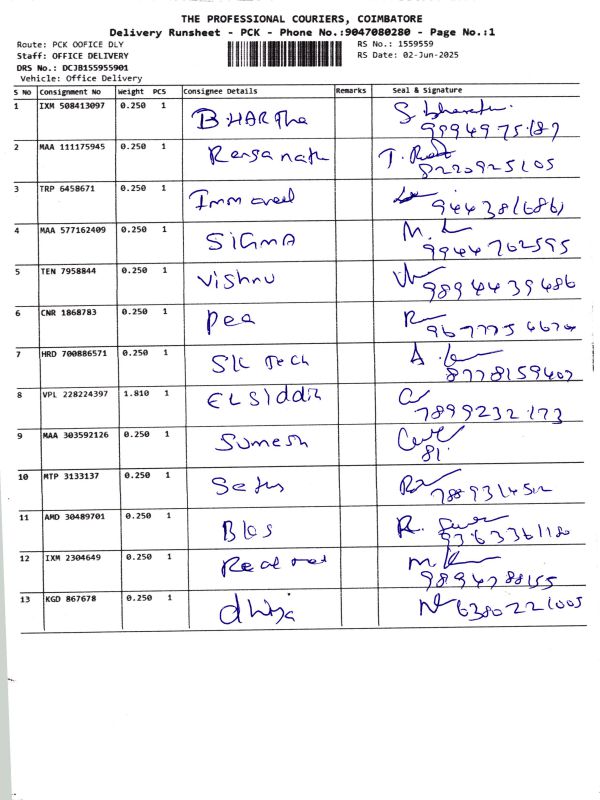 THE PROFESSIONAL COURIERS, COIMBATORE
Delivery Runsheet - PCK - Phone No.:9047080280 - Page No.:1
Route: PCK OOFICE DLY
RS No.: 1559559
Staff: OFFICE DELIVERY
RS Date: 02-Jun-2025
DRS No.: DCJB155955901
Vehicle: Office Delivery
S No Consignment No Weight PCS Consignee Details Remarks Seal & Signature
1 IXM 508413097 0.250 1 BHARTha
2 MAA 111175945 0.250 1 8220925105
3 TRP 6458671 0.250 1
4 MAA 577162409 0.250 1 SIGMA 9944702595
5 TEN 7958844 0.250 1 Vishnu 9894439486
6 CNR 1868783 0.250 1 Pea
7 HRD 700886571 0.250 1 SK Tech 8778159407
8 VPL 228224397 1.810 1 7899232173
9 MAA 303592126 0.250 1 Sumesh 81.
10 MTP 3133137 0.250 1
11 AMD 30489701 0.250 1
12 IXM 2304649 0.250 1 9894788155
13 KGD 867678 0.250 1 6380221005